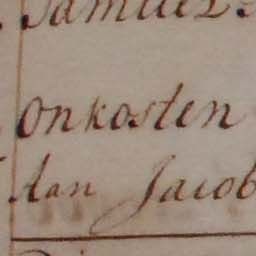 Samuel
Onkosten
Aan Jacob